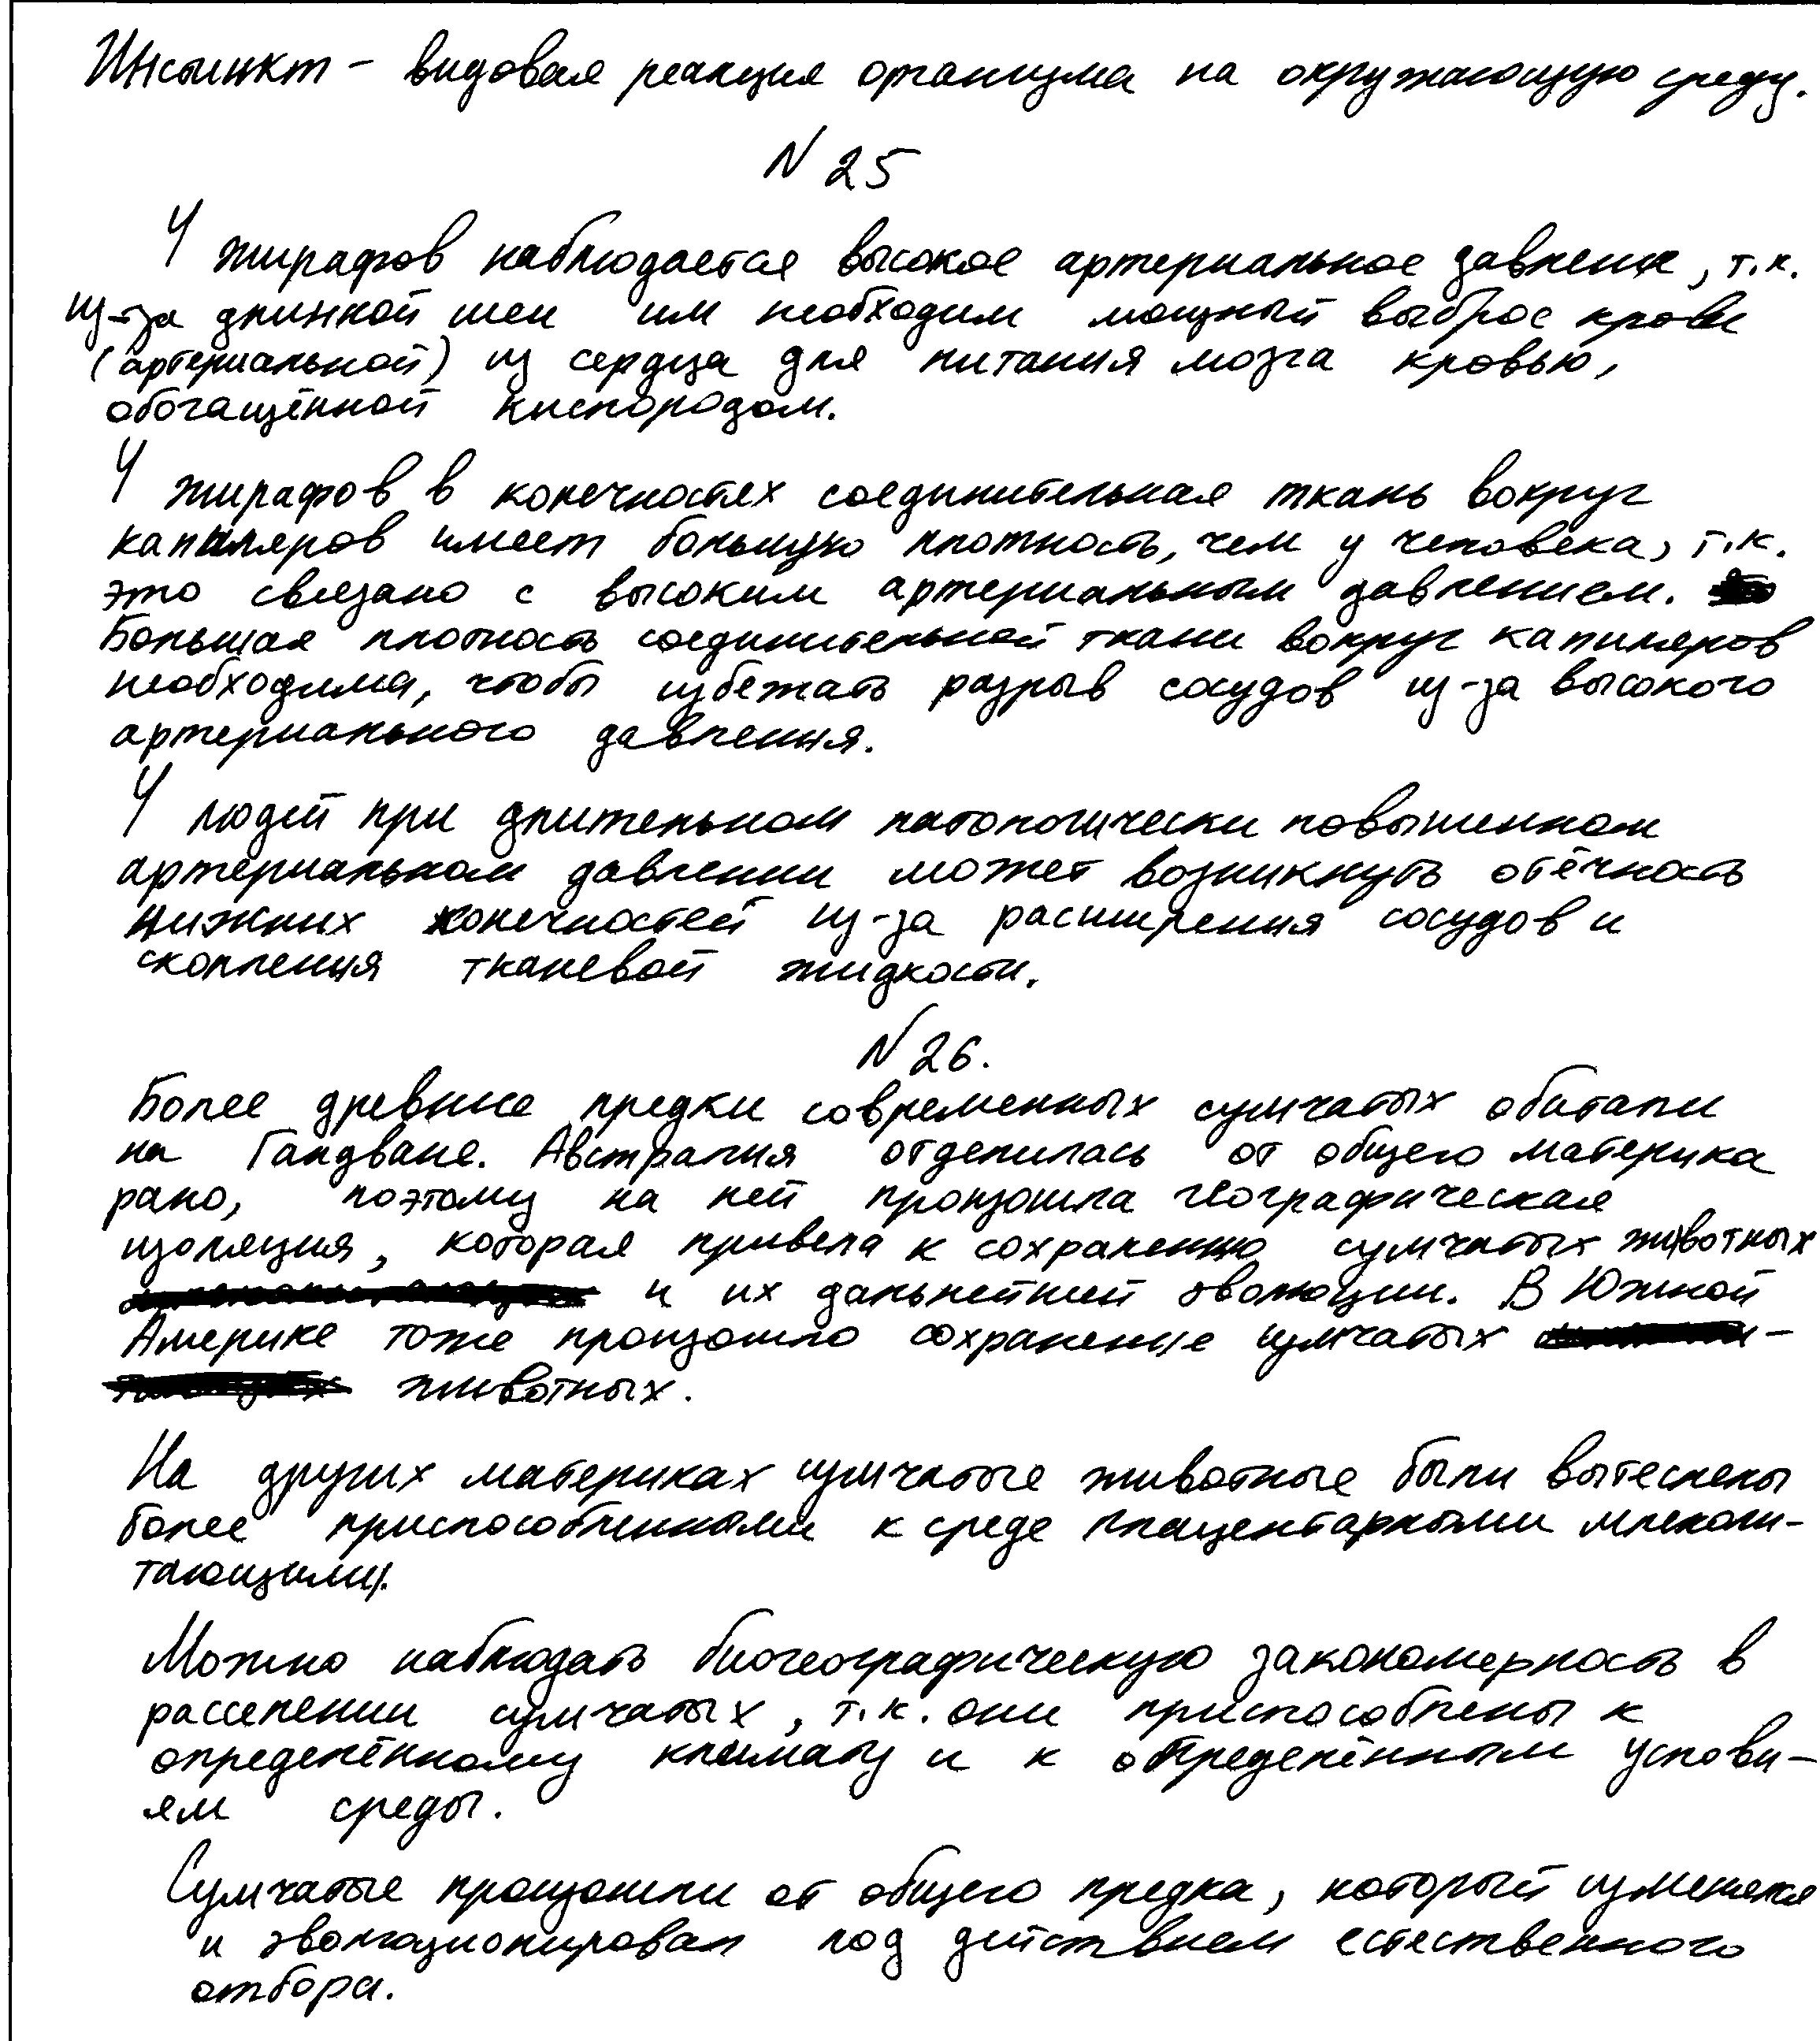 Инстинкт – видовая реакция организма на окружающую среду.
N 25
У жирафов наблюдается высокое артериальное давление, т.к.
из-за длинной шеи им необходим мощный выброс крови
(артериальной) из сердца для питания мозга кровью,
обогащённой кислородом.
У жирафов в конечностях соединительная ткань вокруг
капиляров имеет большую плотность, чем у человека, т.к.
это связано с высоким артериальным давлением.
Большая плотность соединительной ткани вокруг капиляров
необходима, чтобы избежать разрыв сосудов из-за высокого
артериального давления.
У людей при длительном патологически повышенном
артериальном давлении может возникнуть отёчность
нижних конечностей из-за расширения сосудов и
скопления тканевой жидкости.
N 26.
Более древние предки современных сумчатых обитали
на Гандване. Австралия отделилась от общего материка
рано, поэтому на ней произошла географическая
изоляция, которая привела к сохранению сумчатых животных
и их дальнейшей эволюции. В Южной
Америке тоже произошло сохранение сумчатых
животных.
На других материках сумчатые животные были вытеснены
более приспособленными к среде плацентарными млекопи-
тающими.
Можно наблюдать биогеографическую закономерность в
расселении сумчатых, т.к. они приспособлены к
определённому климату и к определённым услови-
ям среды.
Сумчатые произошли от общего предка, который изменялся
и эволюционировал под действием естественного
отбора.